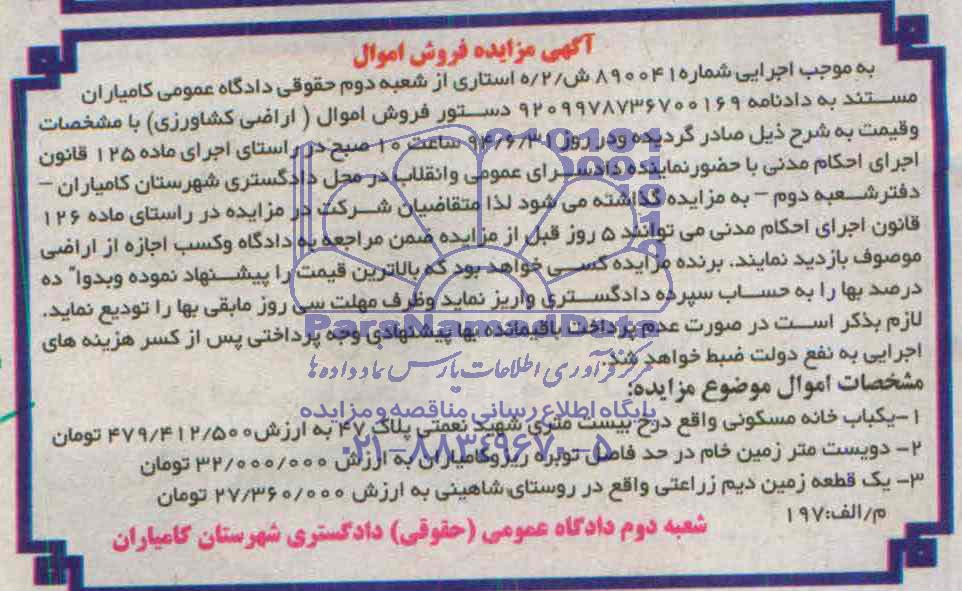 آگهی مزایده فروش اموال
به موجب اجرایی شماره ۸۹۰۰۴۱ ش/۲/ه استاری از شعبه دوم حقوقی دادگاه عمومی کامیاران
مستند به دادنامه ۹۲۰۹۹۷۸۷۳۶۷۰۰۱۶۹ دستور فروش اموال ( اراضی کشاورزی) با مشخصات
وقیمت به شرح ذیل صادر گردیده ودر روز ۹۴/۶/۳۱ ساعت ۱۰ صبح در راستای اجرای ماده ۱۲۵ قانون
اجرای احکام مدنی با حضورنماینده دادسرای عمومی وانقلاب در محل دادگستری شهرستان کامیاران –
دفترشعبه دوم – به مزایده گذاشته می شود لذا متقاضیان شرکت در مزایده در راستای ماده ۱۲۶
قانون اجرای احکام مدنی می توانند ۵ روز قبل از مزایده ضمن مراجعه به دادگاه وکسب اجازه از اراضی
موصوف بازدید نمایند. برنده مزایده کسی خواهد بود که بالاترین قیمت را پیشنهاد نموده وبدوا" ده
درصد بها را به حساب سپرده دادگستری واریز نماید وظرف مهلت سی روز مابقی بها را تودیع نماید.
لازم بذکر است در صورت عدم پرداخت باقیمانده بها پیشنهادی وجه پرداختی پس از کسر هزینه های
اجرایی به نفع دولت ضبط خواهد شد.
مشخصات اموال موضوع مزایده:
۱-یکباب خانه مسکونی واقع درخ بیست متری شهید نعمتی پلاک ۴۷ به ارزش ۴۷۹/۴۱۲/۵۰۰ تومان
۲- دویست متر زمین خام در حد فاصل توبره ریزوکامیاران به ارزش ۳۲/۰۰۰/۰۰۰ تومان
۳- یک قطعه زمین دیم زراعتی واقع در روستای شاهینی به ارزش ۲۷/۳۶۰/۰۰۰ تومان
م/الف:۱۹۷
شعبه دوم دادگاه عمومی (حقوقی) دادگستری شهرستان کامیاران
ParsNamadData
مرکز فرآوری اطلاعات پارس نماد داده ها
پایگاه اطلاع رسانی مناقصه و مزایده
۰۲۱-۸۸۳۴۹۶۷۰-۵